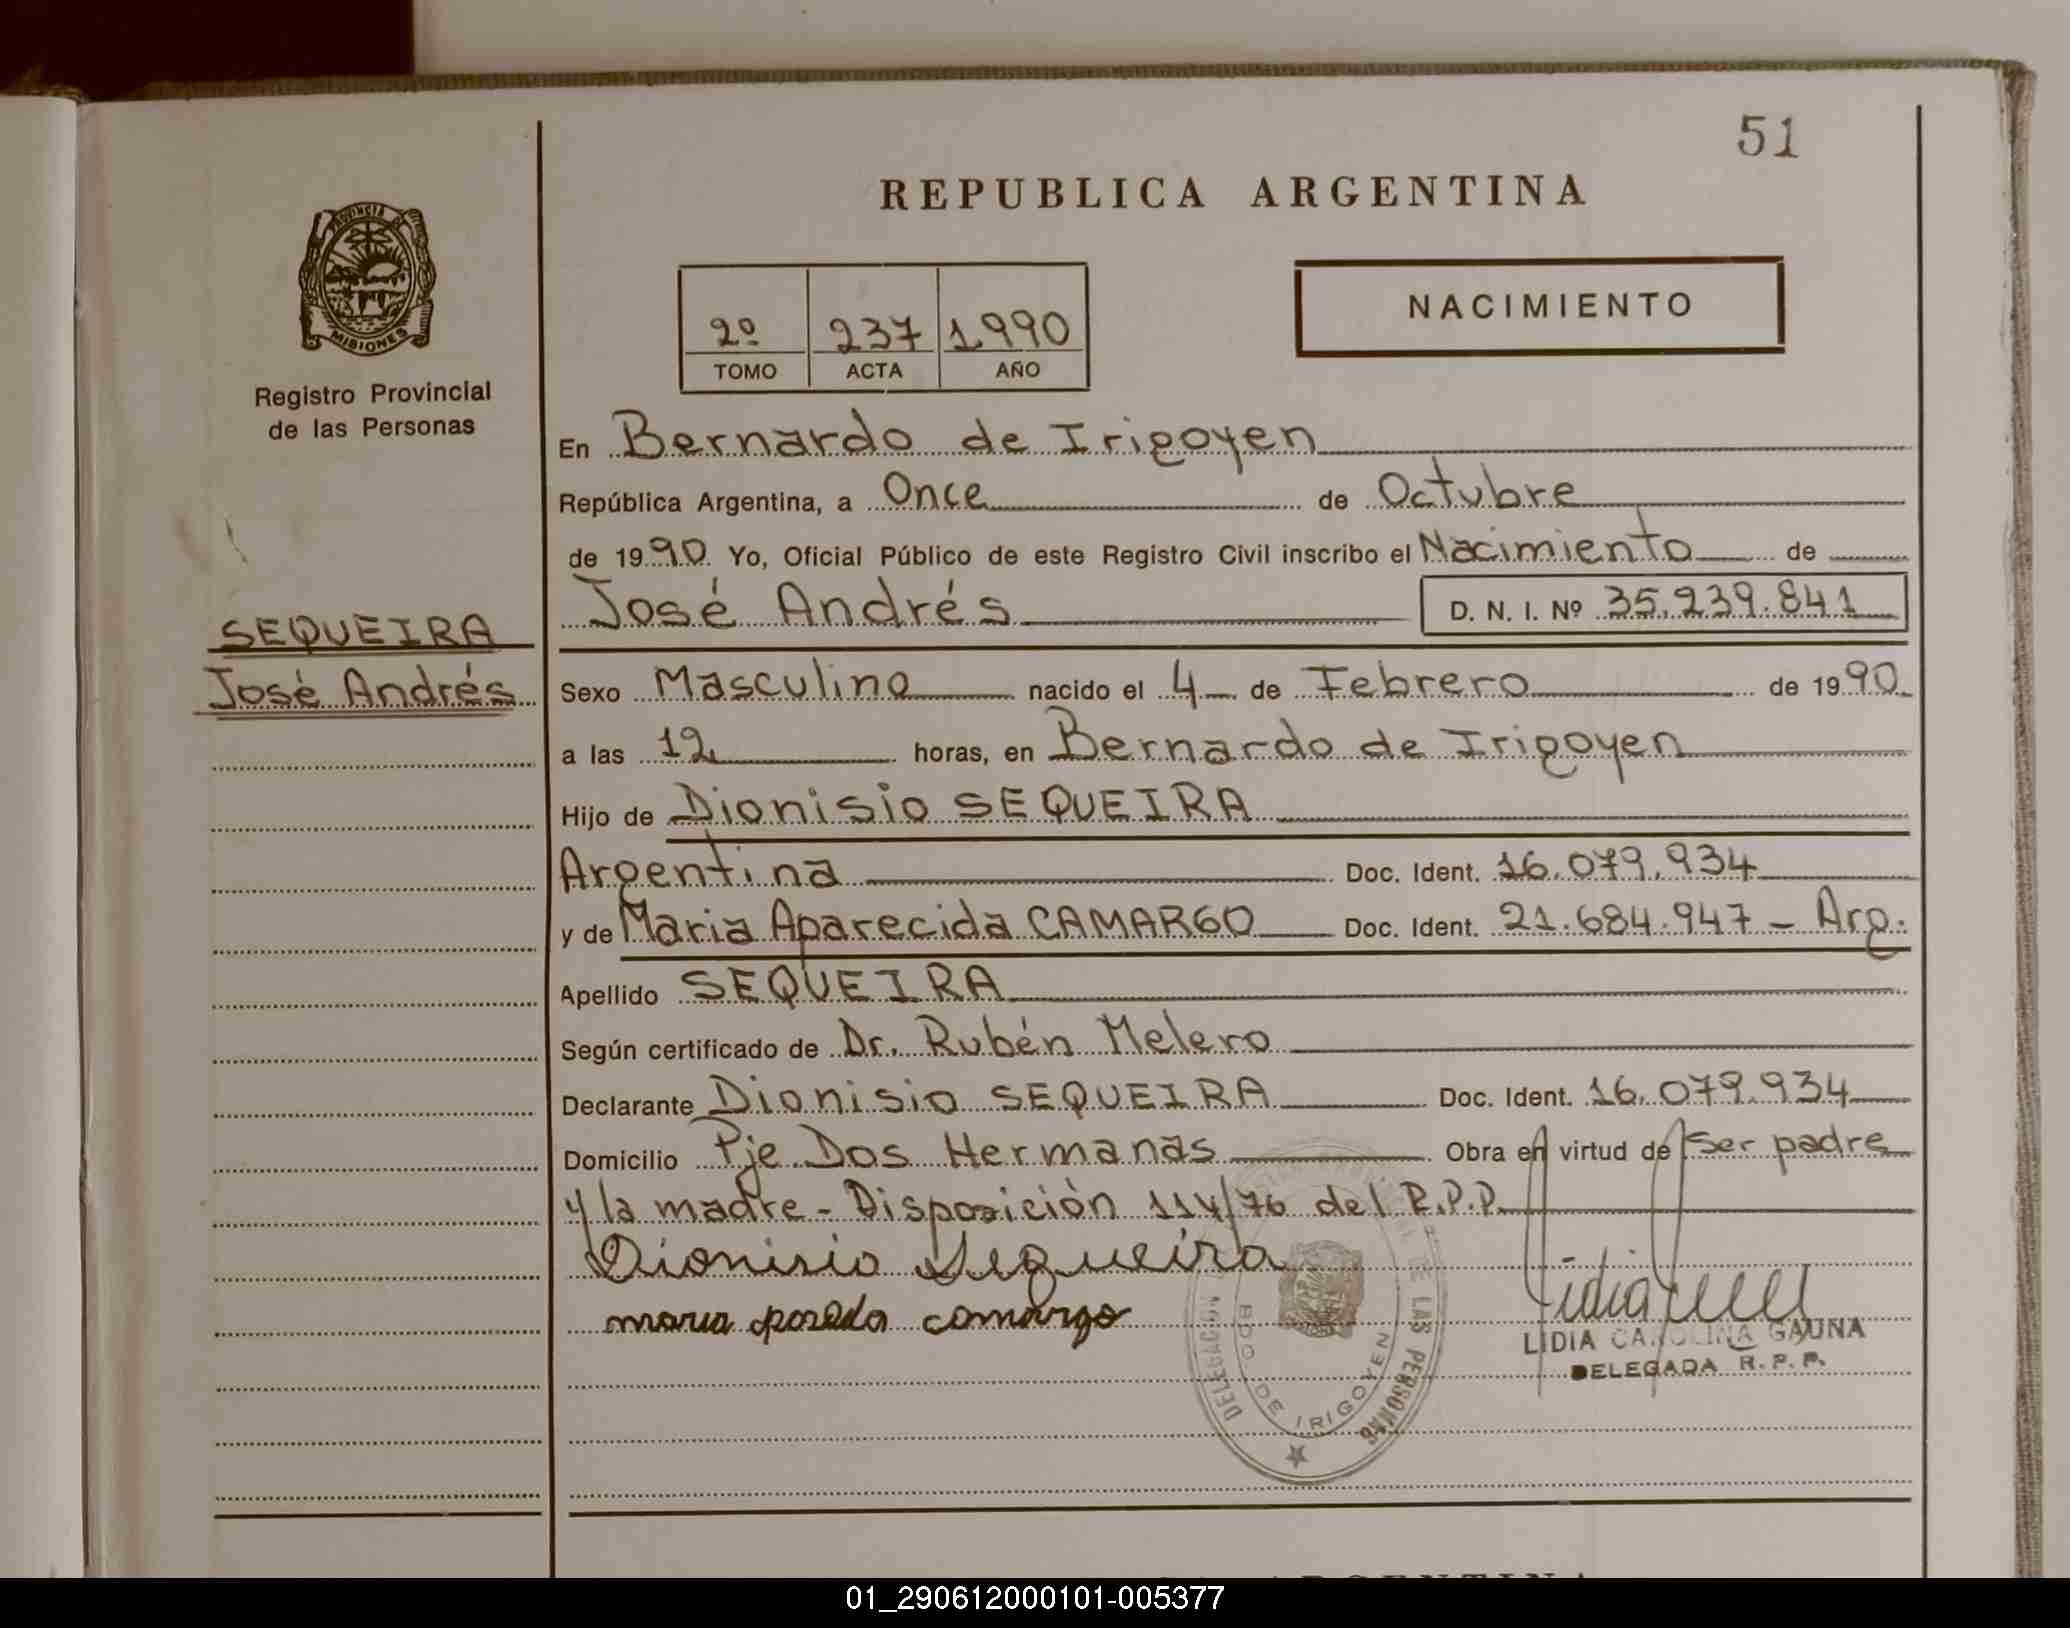 51
REPUBLICA ARGENTINA
PROVINCIA DE
MISIONES
Registro Provincial
de las Personas
NACIMIENTO
2º 237 1990
TOMO ACTA AÑO
En Bernardo de Irigoyen
República Argentina, a Once de Octubre
de 1990 Yo, Oficial Público de este Registro Civil inscribo el Nacimiento de
José Andrés D. N. I. Nº 35.239.841
SEQUEIRA
José Andrés
Sexo Masculino nacido el 4 de Febrero de 1990
a las 12 horas, en Bernardo de Irigoyen
Hijo de Dionisio SEQUEIRA
Argentina Doc. Ident. 16.079.934
y de Maria Aparecida CAMARGO Doc. Ident. 21.684.947 - Arg.
Apellido SEQUEIRA
Según certificado de Dr. Rubén Melero
Declarante Dionisio SEQUEIRA Doc. Ident. 16.079.934
Domicilio Pje Dos Hermanas Obra en virtud de Ser padre
y la madre - Disposición 114/76 del R.P.P.
Dionisio Sequeira
maria camargo
Lidia
LIDIA CAROLINA GAUNA
DELEGADA R. P. P.
DELEGACION DE LAS PERSONAS
BDO. DE IRIGOYEN
ARGENTINA
01_290612000101-005377